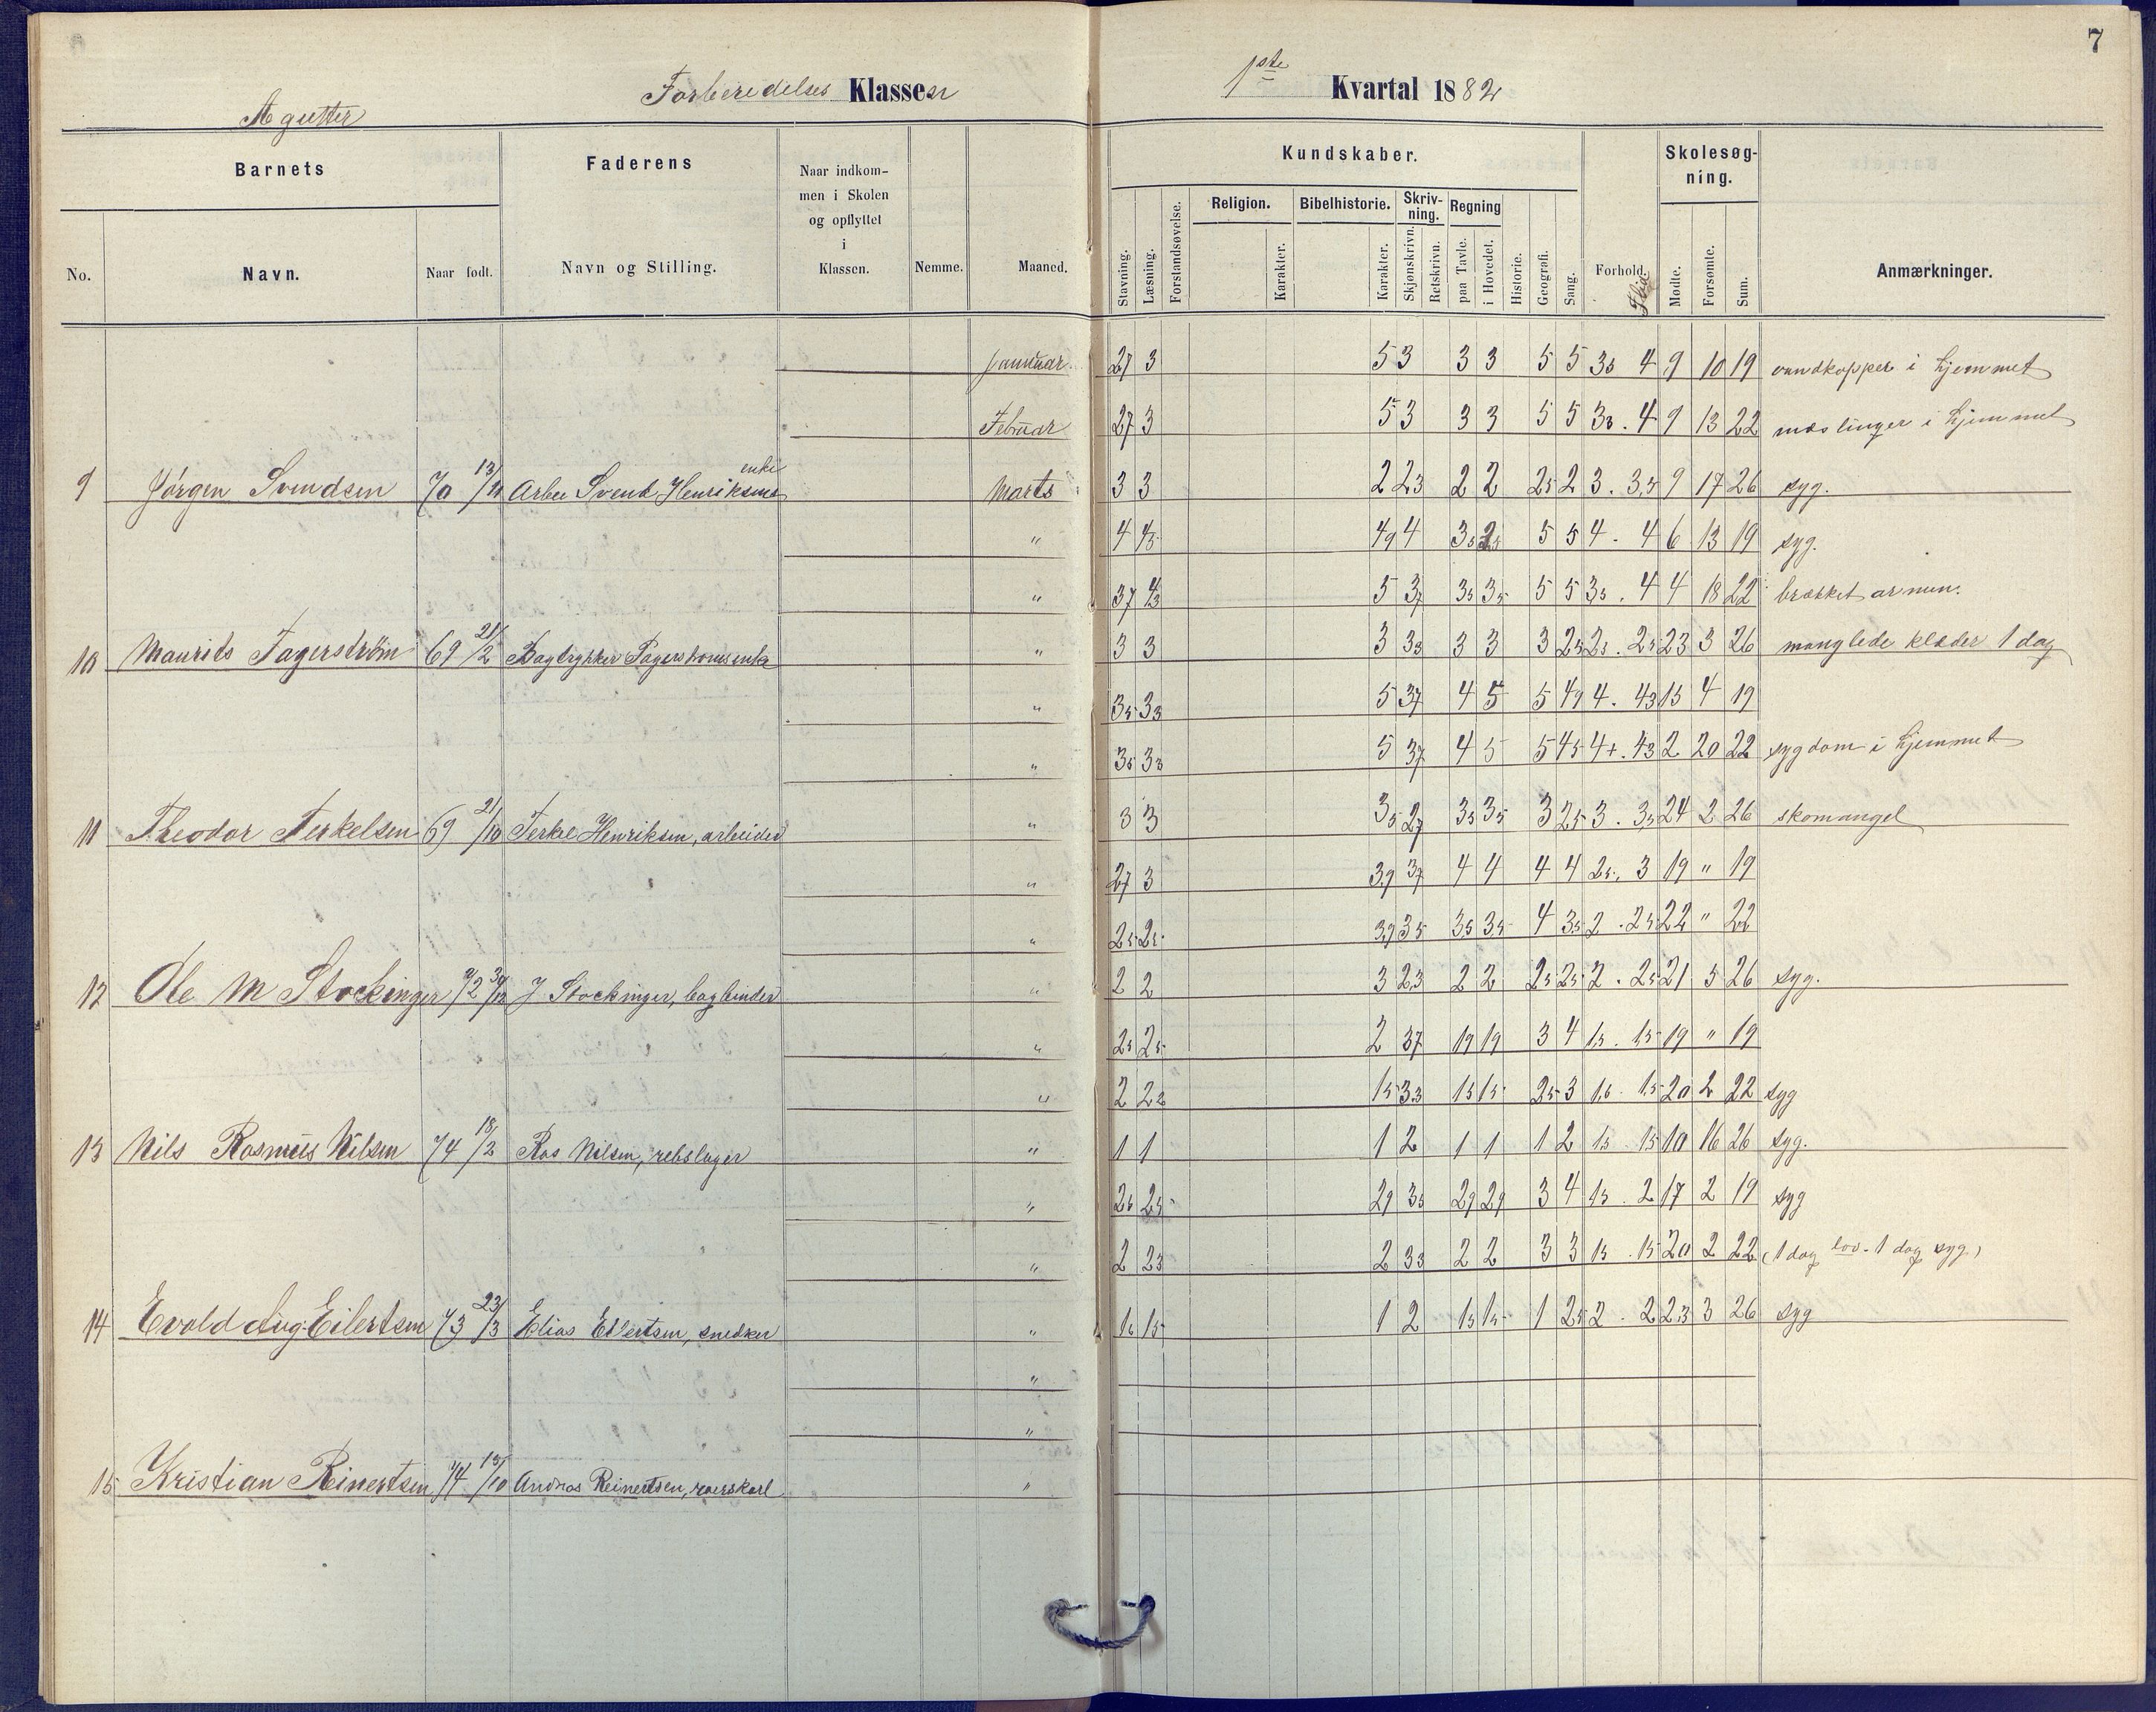 7
Forberedelses Klassen
1ste Kvartal 1882
A gutter
Barnets
Faderens
Naar indkom-
men i Skolen
og opflyttet
i
Klassen.
Nemme.
Maaned.
No.
Navn.
Naar født.
Navn og Stilling.
Kundskaber.
Skolesøg-
ning.
Religion.
Bibelhistorie.
Skriv-
ning.
Regning
Stavning.
Læsning.
Forstandsøvelse.
Karakter.
Karakter.
Skjønskrivn.
Retskrivn.
paa Tavle.
i Hovedet.
Historie.
Geografi.
Sang.
Forhold.
Flid
Mødte.
Forsømte.
Sum.
Anmærkninger.
Januar 27 3 5 3 3 3 5 5 35 4 9 10 19 vandkopper i hjemmet
Februar 27 3 5 3 3 3 5 5 33. 4 9 13 22 mæslinger i hjemmet
9 Jørgen Svendsen 70 13/11 Arbei Svend Henriksens enke Marts 3 3 2 23 2 2 25 2 3. 3,5 9 17 26 syg.
" 4 45 49 4 35 25 5 5 4. 4 6 13 19 syg.
" 37 43 5 37 35 35 5 5 35. 4 4 18 22 brækket armen.
10 Maurits Fagerstrøm 69 21/2 Bogtrykker Fagerstrøms enke " 3 3 3 33 3 3 3 25 25. 25 23 3 26 manglede klæder 1 dag
" 35 33 5 37 4 5 5 49 4. 43 15 4 19
" 35 33 5 37 4 5 5 45 4+. 43 2 20 22 sygdom i hjemmet
11 Theodor Terkelsen 69 21/10 Terkel Henriksen, arbeider " 3 3 35 27 35 35 3 25 3. 3,5 24 2 26 skomangel
" 27 3 39 37 4 4 4 4 25. 3 19 " 19
" 25 25 39 35 35 35 4 35 2. 25 22 " 22
12 Ole M Stockinger 72 30/12 J Stockinger, bogbinder " 2 2 3 23 2 2 25 25 2. 25 21 5 26 syg.
" 25 25 2 37 19 19 3 4 15. 15 19 " 19
" 2 22 15 33 15 15 25 3 15. 15 20 2 22 syg
13 Nils Rasmus Nilsen 74 18/2 Ras Nilsen, rebslager " 1 1 1 2 1 1 1 2 15. 15 10 16 26 syg.
" 25 25 29 35 29 29 3 4 15. 2 17 2 19 syg
" 2 23 2 33 2 2 3 3 15. 15 20 2 22 (1 dag lov - 1 dag syg.)
14 Evald Aug. Eilertsen 73 23/3 Elias Eilertsen, snedker " 15 15 1 2 15 15 1 25 2. 2 23 3 26 syg
"
"
15 Kristian Reinertsen 74 15/10 Andreas Reinertsen, roerskarl "